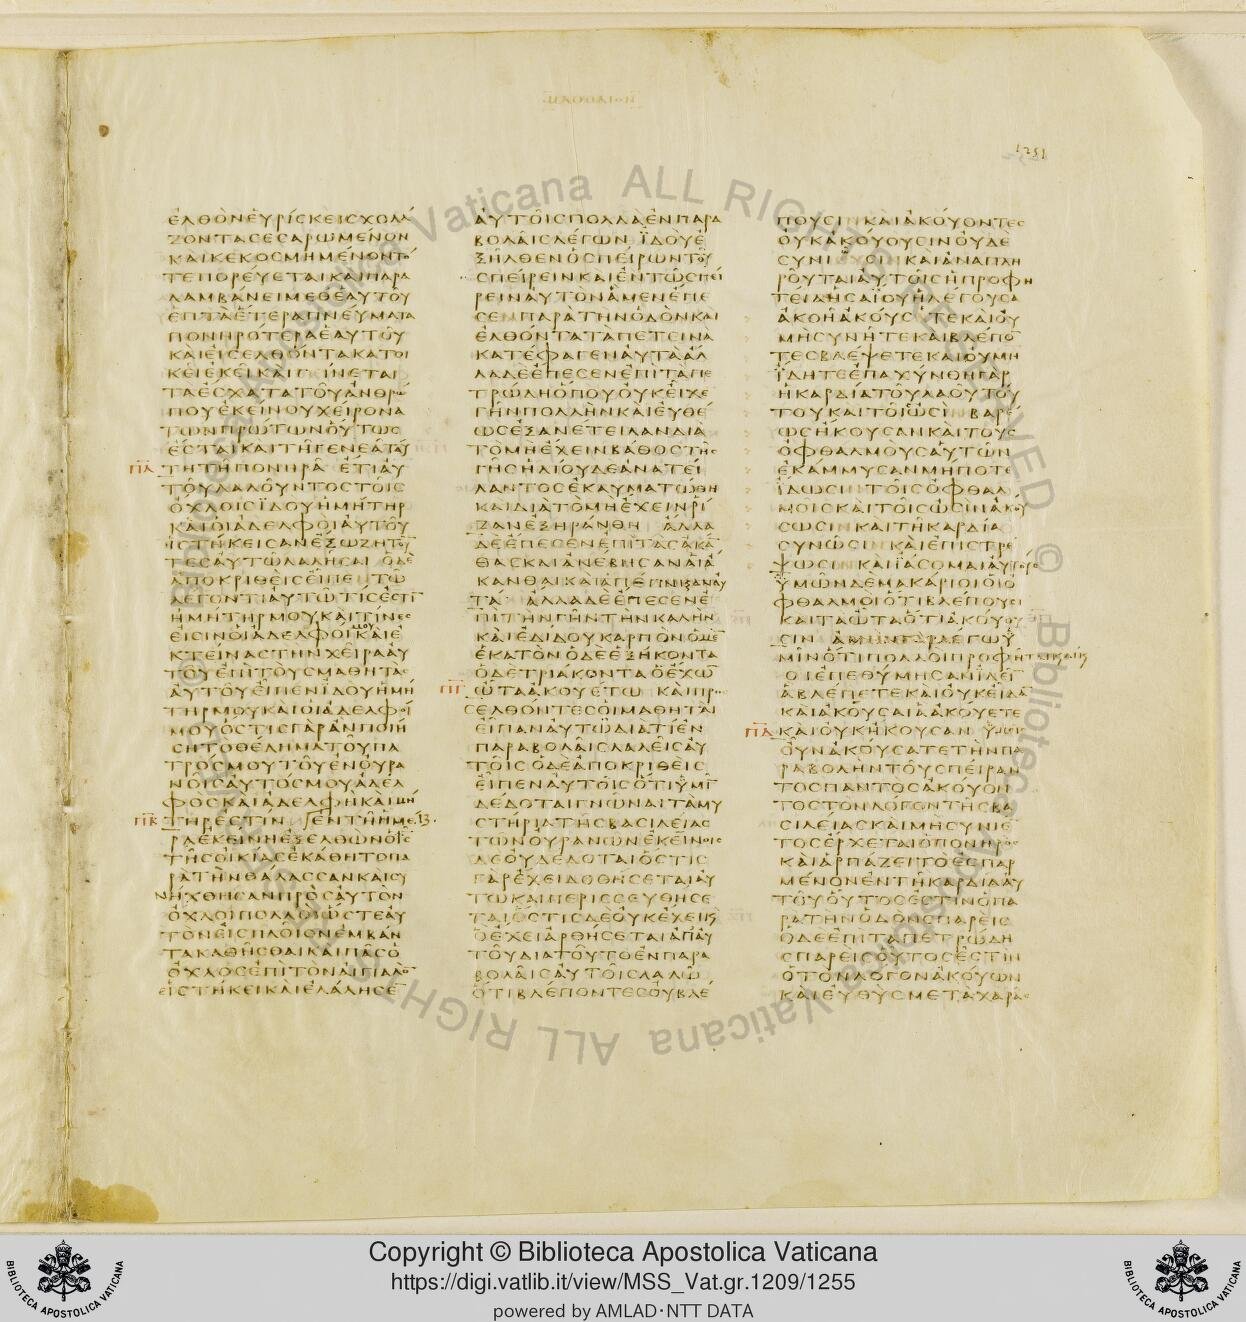 1251
ΕΛΘΟΝΕΥΡΙΣΚΕΙΣΧΟΛΑ
ΖΟΝΤΑΣΕΣΑΡΩΜΕΝΟΝ
ΚΑΙΚΕΚΟΣΜΗΜΕΝΟΝΤΟ
ΤΕΠΟΡΕΥΕΤΑΙΚΑΙΠΑΡΑ
ΛΑΜΒΑΝΕΙΜΕΘΕΑΥΤΟΥ
ΕΠΤΑΕΤΕΡΑΠΝΕΥΜΑΤΑ
ΠΟΝΗΡΟΤΕΡΑΕΑΥΤΟΥ
ΚΑΙΕΙΣΕΛΘΟΝΤΑΚΑΤΟΙ
ΚΕΙΕΚΕΙΚΑΙΓΙΝΕΤΑΙ
ΤΑΕΣΧΑΤΑΤΟΥΑΝΘΡΩ
ΠΟΥΕΚΕΙΝΟΥΧΕΙΡΟΝΑ
ΤΩΝΠΡΩΤΩΝΟΥΤΩΣ
ΕΣΤΑΙΚΑΙΤΗΓΕΝΕΑΤΑΥ
ΠΑ ΤΗΤΗΠΟΝΗΡΑ ΕΤΙΑΥ
ΤΟΥΛΑΛΟΥΝΤΟΣΤΟΙΣ
ΟΧΛΟΙΣΪΔΟΥΗΜΗΤΗΡ
ΚΑΙΟΙΑΔΕΛΦΟΙΑΥΤΟΥ
ΙΣΤΗΚΕΙΣΑΝΕΞΩΖΗΤΟΥ
ΤΕΣΑΥΤΩΛΑΛΗΣΑΙ ΟΔΕ
ΑΠΟΚΡΙΘΕΙΣΕΙΠΕ ΤΩ
ΛΕΓΟΝΤΙΑΥΤΩΤΙΣΕΣΤΙ
ΗΜΗΤΗΡΜΟΥΚΑΙΤΙΝΕΣ
ΕΙΣΙΝΟΙΑΔΕΛΦΟΙΜΟΥΚΑΙΕ
ΚΤΕΙΝΑΣΤΗΝΧΕΙΡΑΑΥ
ΤΟΥΕΠΙΤΟΥΣΜΑΘΗΤΑΣ
ΑΥΤΟΥΕΙΠΕΝΙΔΟΥΗΜΗ
ΤΗΡΜΟΥΚΑΙΟΙΑΔΕΛΦΟΙ
ΜΟΥΟΣΤΙΣΓΑΡΑΝΠΟΙΗ
ΣΗΤΟΘΕΛΗΜΑΤΟΥΠΑ
ΤΡΟΣΜΟΥΤΟΥΕΝΟΥΡΑ
ΝΟΙΣΑΥΤΟΣΜΟΥΑΔΕΛ
ΦΟΣΚΑΙΑΔΕΛΦΗΚΑΙΜΗ
ΠΒ ΤΗΡΕΣΤΙΝ ΕΝΤΗΗΜΕ ΙΓ
ΡΑΕΚΕΙΝΗΕΞΕΛΘΩΝΟΙΣ
ΤΗΣΟΙΚΙΑΣΕΚΑΘΗΤΟΠΑ
ΡΑΤΗΝΘΑΛΑΣΣΑΝΚΑΙΣΥ
ΝΗΧΘΗΣΑΝΠΡΟΣΑΥΤΟΝ
ΟΧΛΟΙΠΟΛΛΟΙΩΣΤΕΑΥ
ΤΟΝΕΙΣΠΛΟΙΟΝΕΜΒΑΝ
ΤΑΚΑΘΗΣΘΑΙΚΑΙΠΑΣΟ
ΟΧΛΟΣΕΠΙΤΟΝΑΙΓΙΑΛΟ
ΕΙΣΤΗΚΕΙΚΑΙΕΛΑΛΗΣΕ
ΑΥΤΟΙΣΠΟΛΛΑΕΝΠΑΡΑ
ΒΟΛΑΙΣΛΕΓΩΝ ΪΔΟΥΕ
ΞΗΛΘΕΝΟΣΠΕΙΡΩΝΤΟΥ
ΣΠΕΙΡΕΙΝΚΑΙΕΝΤΩΣΠΕΙ
ΡΕΙΝΑΥΤΟΝΑΜΕΝΕΠΕ
ΣΕΝΠΑΡΑΤΗΝΟΔΟΝΚΑΙ
ΕΛΘΟΝΤΑΤΑΠΕΤΕΙΝΑ
ΚΑΤΕΦΑΓΕΝΑΥΤΑΑΛ
ΛΑΔΕΕΠΕΣΕΝΕΠΙΤΑΠΕ
ΤΡΩΔΗΟΠΟΥΟΥΚΕΙΧΕ
ΓΗΝΠΟΛΛΗΝΚΑΙΕΥΘΕ
ΩΣΕΞΑΝΕΤΕΙΛΑΝΔΙΑ
ΤΟΜΗΕΧΕΙΝΒΑΘΟΣΤΗΣ
ΓΗΣΗΛΙΟΥΔΕΑΝΑΤΕΙ
ΛΑΝΤΟΣΕΚΑΥΜΑΤΩΘΗ
ΚΑΙΔΙΑΤΟΜΗΕΧΕΙΝΡΙ
ΖΑΝΕΞΗΡΑΝΘΗ ΑΛΛΑ
ΔΕΕΠΕΣΕΝΕΠΙΤΑΣΑΚΑ
ΘΑΣΚΑΙΑΝΕΒΗΣΑΝΑΙΑ
ΚΑΝΘΑΙΚΑΙΑΠΕΠΝΙΞΑΝΑΥ
ΤΑ ΑΛΛΑΔΕΕΠΕΣΕΝΕ
ΠΙΤΗΝΓΗΝΤΗΝΚΑΛΗΝ
ΚΑΙΕΔΙΔΟΥΚΑΡΠΟΝΟΜΕ
ΕΚΑΤΟΝΟΔΕΕΞΗΚΟΝΤΑ
ΟΔΕΤΡΙΑΚΟΝΤΑΟΕΧΩ
ΠΓ ΩΤΑΑΚΟΥΕΤΩ ΚΑΙΠΡΟ
ΣΕΛΘΟΝΤΕΣΟΙΜΑΘΗΤΑΙ
ΕΙΠΑΝΑΥΤΩΔΙΑΤΙΕΝ
ΠΑΡΑΒΟΛΑΙΣΛΑΛΕΙΣΑΥ
ΤΟΙΣΟΔΕΑΠΟΚΡΙΘΕΙΣ
ΕΙΠΕΝΑΥΤΟΙΣΟΤΙΥΜΙ
ΔΕΔΟΤΑΙΓΝΩΝΑΙΤΑΜΥ
ΣΤΗΡΙΑΤΗΣΒΑΣΙΛΕΙΑΣ
ΤΩΝΟΥΡΑΝΩΝΕΚΕΙΝΟΙΣ
ΔΕΟΥΔΕΔΟΤΑΙΟΣΤΙΣ
ΓΑΡΕΧΕΙΔΟΘΗΣΕΤΑΙΑΥ
ΤΩΚΑΙΠΕΡΙΣΣΕΥΘΗΣΕ
ΤΑΙΟΣΤΙΣΔΕΟΥΚΕΧΕΙΚ
ΟΕΧΕΙΑΡΘΗΣΕΤΑΙΑΠΑΥ
ΤΟΥΔΙΑΤΟΥΤΟΕΝΠΑΡΑ
ΒΟΛΑΙΣΑΥΤΟΙΣΛΑΛΩ
ΟΤΙΒΛΕΠΟΝΤΕΣΟΥΒΛΕ
ΠΟΥΣΙΝΚΑΙΑΚΟΥΟΝΤΕΣ
ΟΥΚΑΚΟΥΟΥΣΙΝΟΥΔΕ
ΣΥΝΙΟΥΣΙΝΚΑΙΑΝΑΠΛΗ
ΡΟΥΤΑΙΑΥΤΟΙΣΗΠΡΟΦΗ
ΤΕΙΑΗΣΑΪΟΥΗΛΕΓΟΥΣΑ
ΑΚΟΗΑΚΟΥΣΕΤΕΚΑΙΟΥ
ΜΗΣΥΝΗΤΕΚΑΙΒΛΕΠΟ
ΤΕΣΒΛΕΨΕΤΕΚΑΙΟΥΜΗ
ΪΔΗΤΕΕΠΑΧΥΝΘΗΓΑΡ
ΗΚΑΡΔΙΑΤΟΥΛΑΟΥΤΟΥ
ΤΟΥΚΑΙΤΟΙΣΩΣΙΝΒΑΡΕ
ΩΣΗΚΟΥΣΑΝΚΑΙΤΟΥΣ
ΟΦΘΑΛΜΟΥΣΑΥΤΩΝ
ΕΚΑΜΜΥΣΑΝΜΗΠΟΤΕ
ΪΔΩΣΙΝΤΟΙΣΟΦΘΑΛ
ΜΟΙΣΚΑΙΤΟΙΣΩΣΙΝΑΚΟΥ
ΣΩΣΙΝΚΑΙΤΗΚΑΡΔΙΑ
ΣΥΝΩΣΙΝΚΑΙΕΠΙΣΤΡΕ
ΨΩΣΙΝΚΑΙΙΑΣΟΜΑΙΑΥΤΟΥΣ
ΥΜΩΝΔΕΜΑΚΑΡΙΟΙΟΙΟ
ΦΘΑΛΜΟΙΟΤΙΒΛΕΠΟΥΣΙ
ΚΑΙΤΑΩΤΑΟΤΙΑΚΟΥΟΥ
ΣΙΝ ΑΜΗΝΓΑΡΛΕΓΩΥ
ΜΙΝΟΤΙΠΟΛΛΟΙΠΡΟΦΗΤΑΙ
ΟΙΕΠΕΘΥΜΗΣΑΝΙΔΕΙ
ΑΒΛΕΠΕΤΕΚΑΙΟΥΚΕΙΔΑ
ΚΑΙΑΚΟΥΣΑΙΑΑΚΟΥΕΤΕ
ΠΔ ΚΑΙΟΥΚΗΚΟΥΣΑΝ ΥΜΕΙΣ
ΟΥΝΑΚΟΥΣΑΤΕΤΗΝΠΑ
ΡΑΒΟΛΗΝΤΟΥΣΠΕΙΡΑΝ
ΤΟΣΠΑΝΤΟΣΑΚΟΥΟΝ
ΤΟΣΤΟΝΛΟΓΟΝΤΗΣΒΑ
ΣΙΛΕΙΑΣΚΑΙΜΗΣΥΝΙΕ
ΤΟΣΕΡΧΕΤΑΙΟΠΟΝΗΡΟΣ
ΚΑΙΑΡΠΑΖΕΙΤΟΕΣΠΑΡ
ΜΕΝΟΝΕΝΤΗΚΑΡΔΙΑΑΥ
ΤΟΥΟΥΤΟΣΕΣΤΙΝΟΠΑ
ΡΑΤΗΝΟΔΟΝΣΠΑΡΕΙΣ
ΟΔΕΕΠΙΤΑΠΕΤΡΩΔΗ
ΣΠΑΡΕΙΣΟΥΤΟΣΕΣΤΙΝ
ΟΤΟΝΛΟΓΟΝΑΚΟΥΩΝ
ΚΑΙΕΥΘΥΣΜΕΤΑΧΑΡΑΣ
Copyright © Biblioteca Apostolica Vaticana
https://digi.vatlib.it/view/MSS_Vat.gr.1209/1255
powered by AMLAD·NTT DATA
BIBLIOTECA APOSTOLICA VATICANA
BIBLIOTECA APOSTOLICA VATICANA